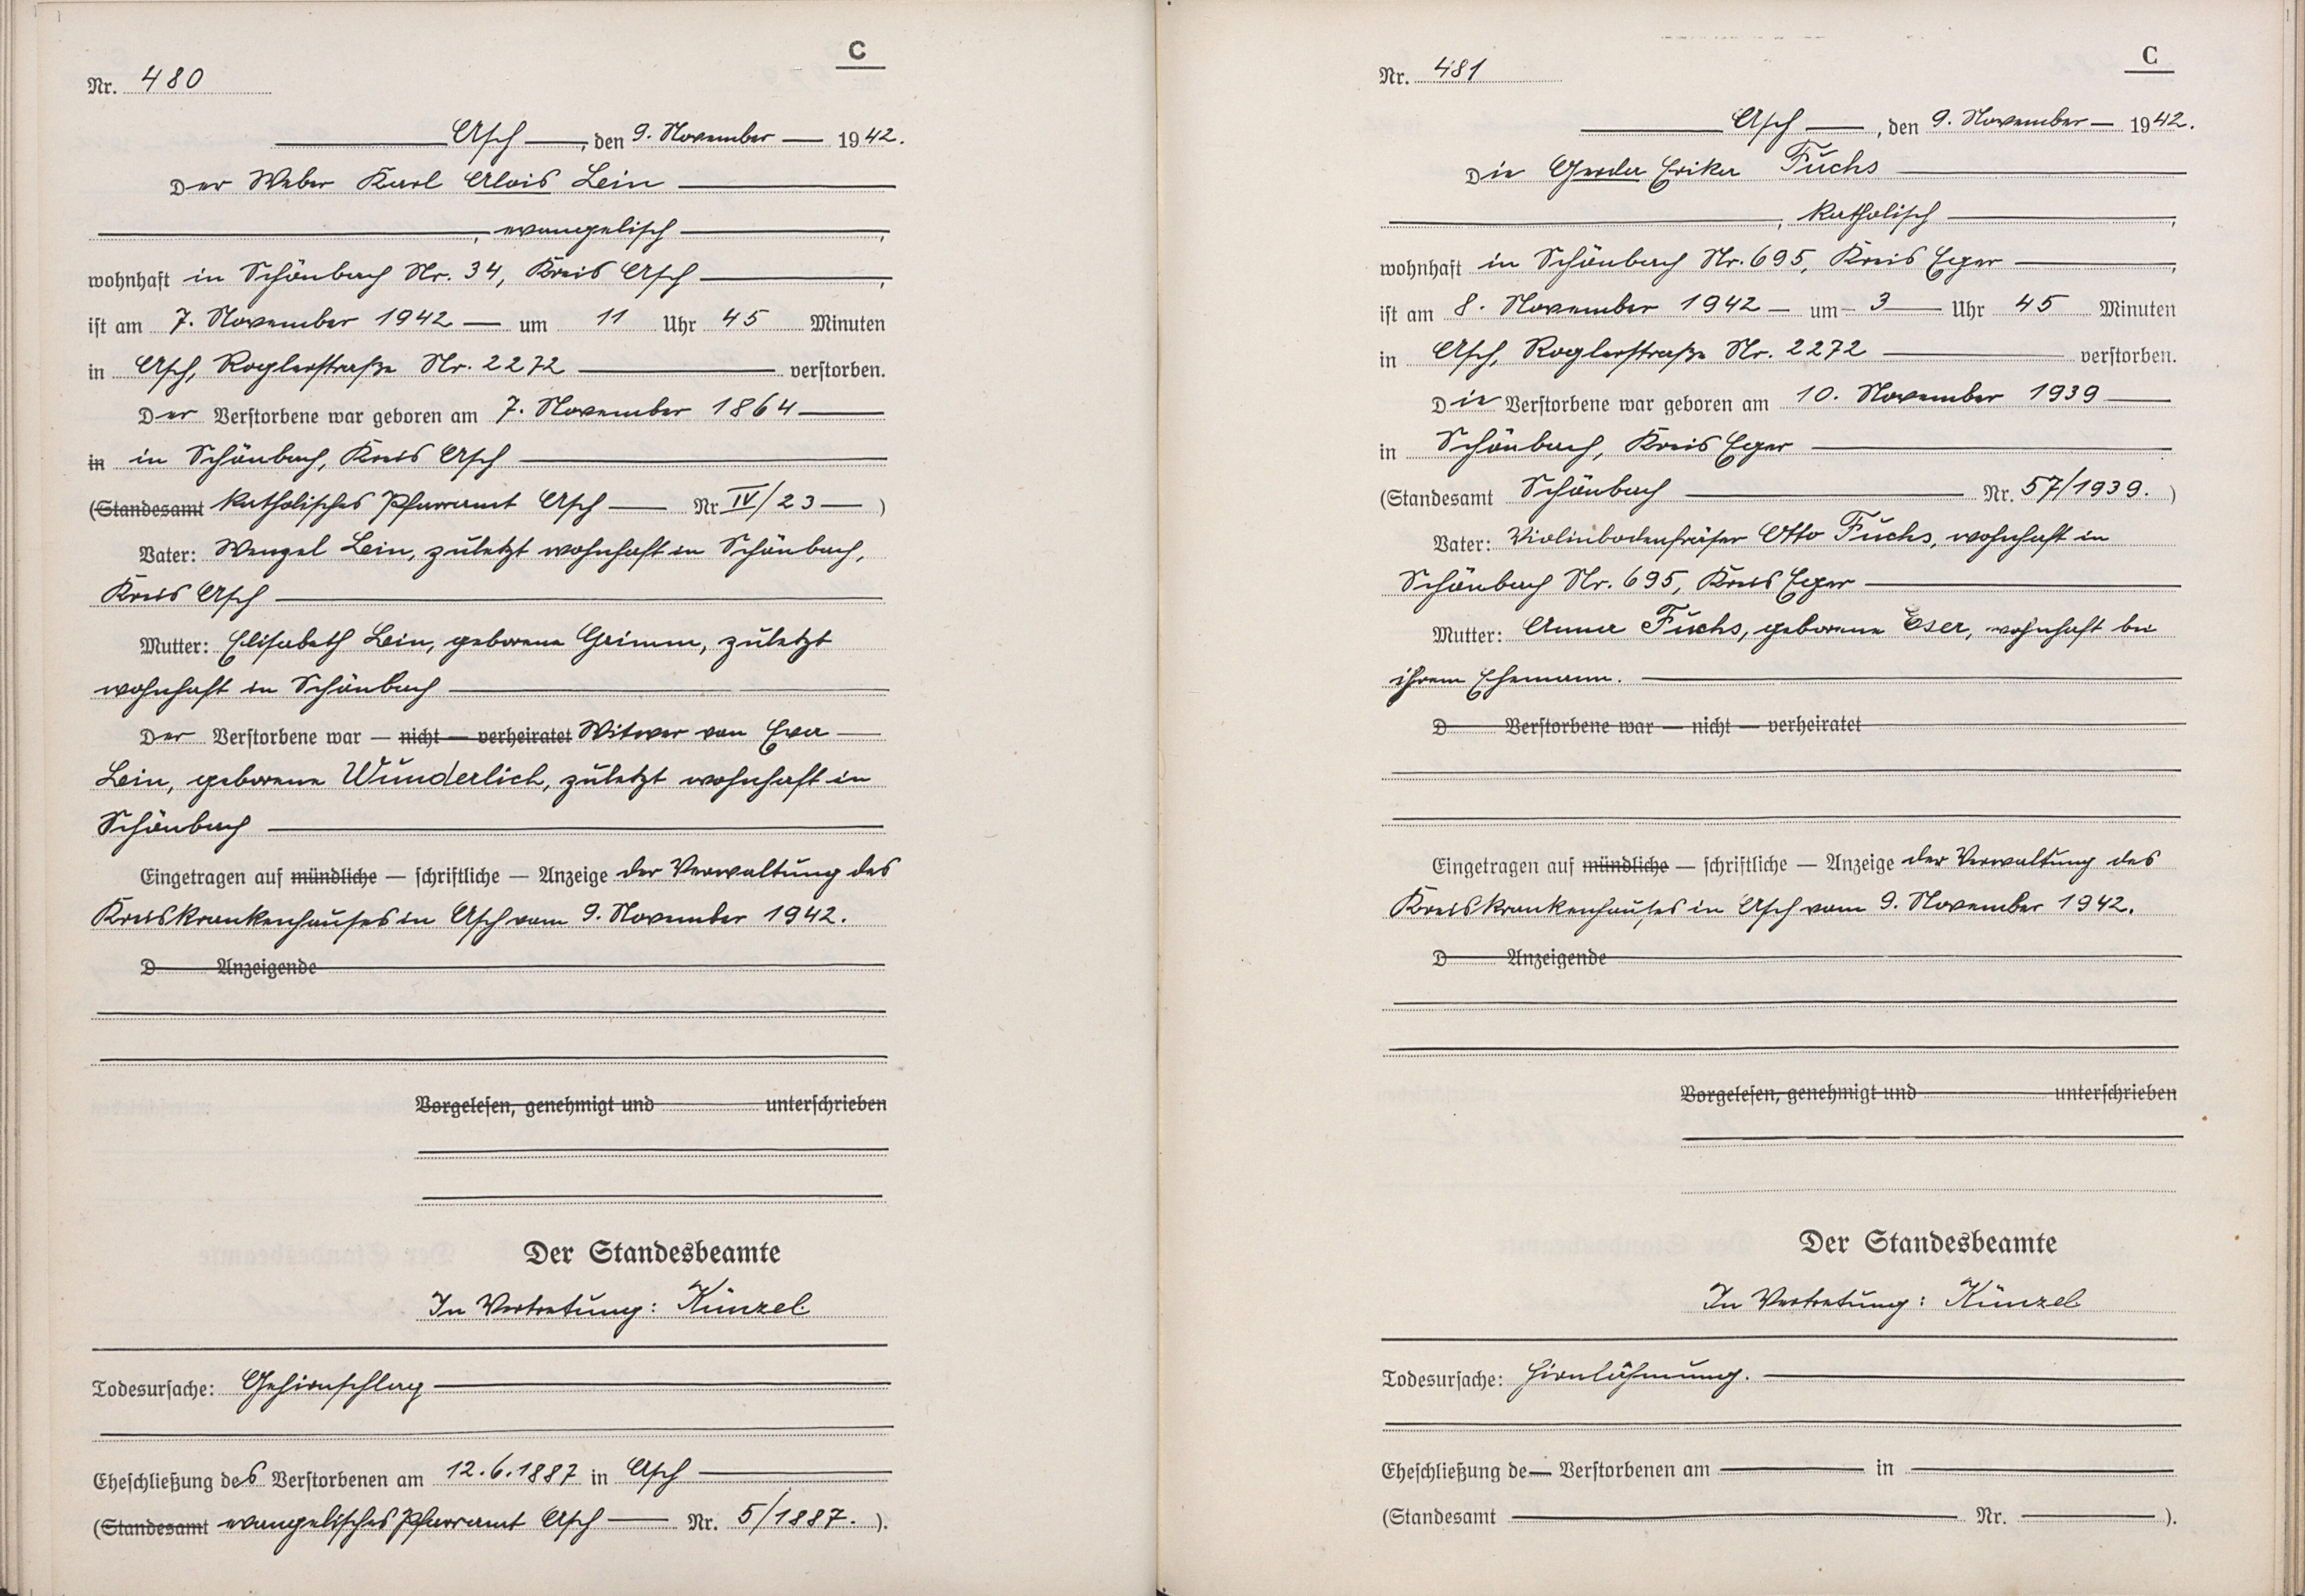 C
Nr. 480
Asch, den 9. November 1942.
Der Weber Karl Alois Lein
, evangelisch,
wohnhaft in Schönbach Nr. 34, Kreis Asch,
ist am 7. November 1942 um 11 Uhr 45 Minuten
in Asch, Roglerstraße Nr. 2272 verstorben.
Der Verstorbene war geboren am 7. November 1864
in in Schönbach, Kreis Asch
(Standesamt katholisches Pfarramt Asch Nr IV/23)
Vater: Wenzel Lein, zuletzt wohnhaft in Schönbach,
Kreis Asch
Mutter: Elisabeth Lein, geborene Grimm, zuletzt
wohnhaft in Schönbach
Der Verstorbene war — nicht — verheiratet Witwer von Eva
Lein, geborene Wunderlich, zuletzt wohnhaft in
Schönbach
Eingetragen auf mündliche — schriftliche — Anzeige der Verwaltung des
Kreiskrankenhauses in Asch vom 9. November 1942.
D Anzeigende
Vorgelesen, genehmigt und unterschrieben
Der Standesbeamte
In Vertretung: Künzel.
Todesursache: Gehirnschlag
Eheschließung des Verstorbenen am 12.6.1887 in Asch
(Standesamt evangelisches Pfarramt Asch Nr. 5/1887. ).
C
Nr. 481
Asch, den 9. November 1942.
Die Gerda Erika Fuchs
, katholisch,
wohnhaft in Schönbach Nr. 695, Kreis Eger,
ist am 8. November 1942 um 3 Uhr 45 Minuten
in Asch, Roglerstraße Nr. 2272 verstorben.
Die Verstorbene war geboren am 10. November 1939
in Schönbach, Kreis Eger
(Standesamt Schönbach Nr. 57/1939. )
Vater: Violinbodenfräser Otto Fuchs, wohnhaft in
Schönbach Nr. 695, Kreis Eger
Mutter: Anna Fuchs, geborene Eser, wohnhaft bei
ihrem Ehemann.
D Verstorbene war — nicht — verheiratet
Eingetragen auf mündliche — schriftliche — Anzeige der Verwaltung des
Kreiskrankenhauses in Asch vom 9. November 1942.
D Anzeigende
Vorgelesen, genehmigt und unterschrieben
Der Standesbeamte
In Vertretung: Künzel
Todesursache: Hirnlähmung.
Eheschließung de Verstorbenen am in
(Standesamt Nr. ).